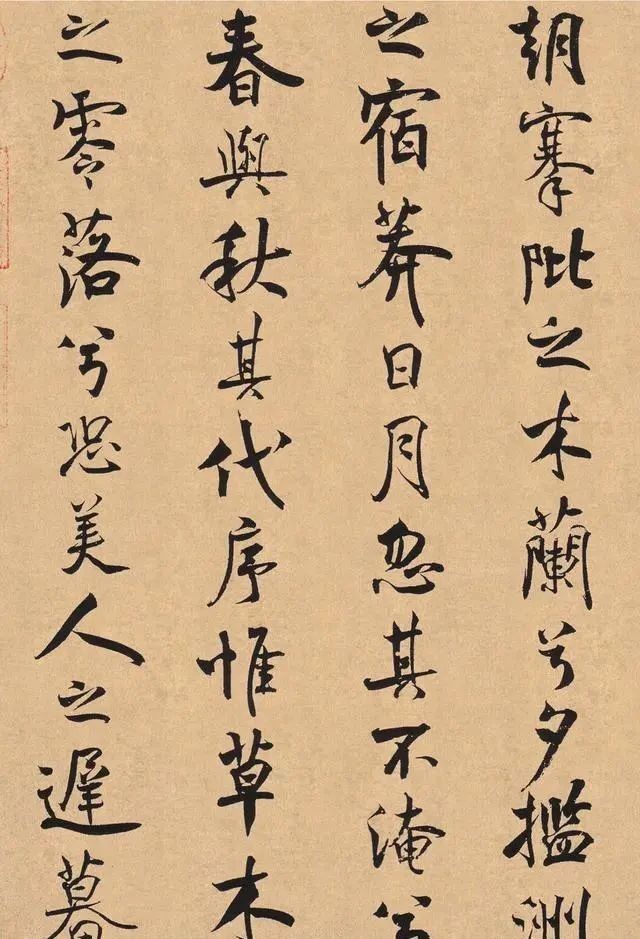 朝搴阰之木蘭兮夕擥洲
之宿莽日月忽其不淹兮
春與秋其代序惟草木
之零落兮恐美人之遲暮